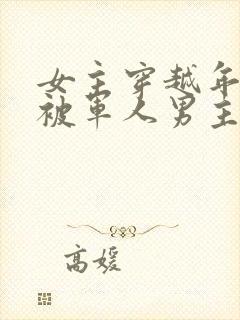 女主穿越年
被军人男主
高媛